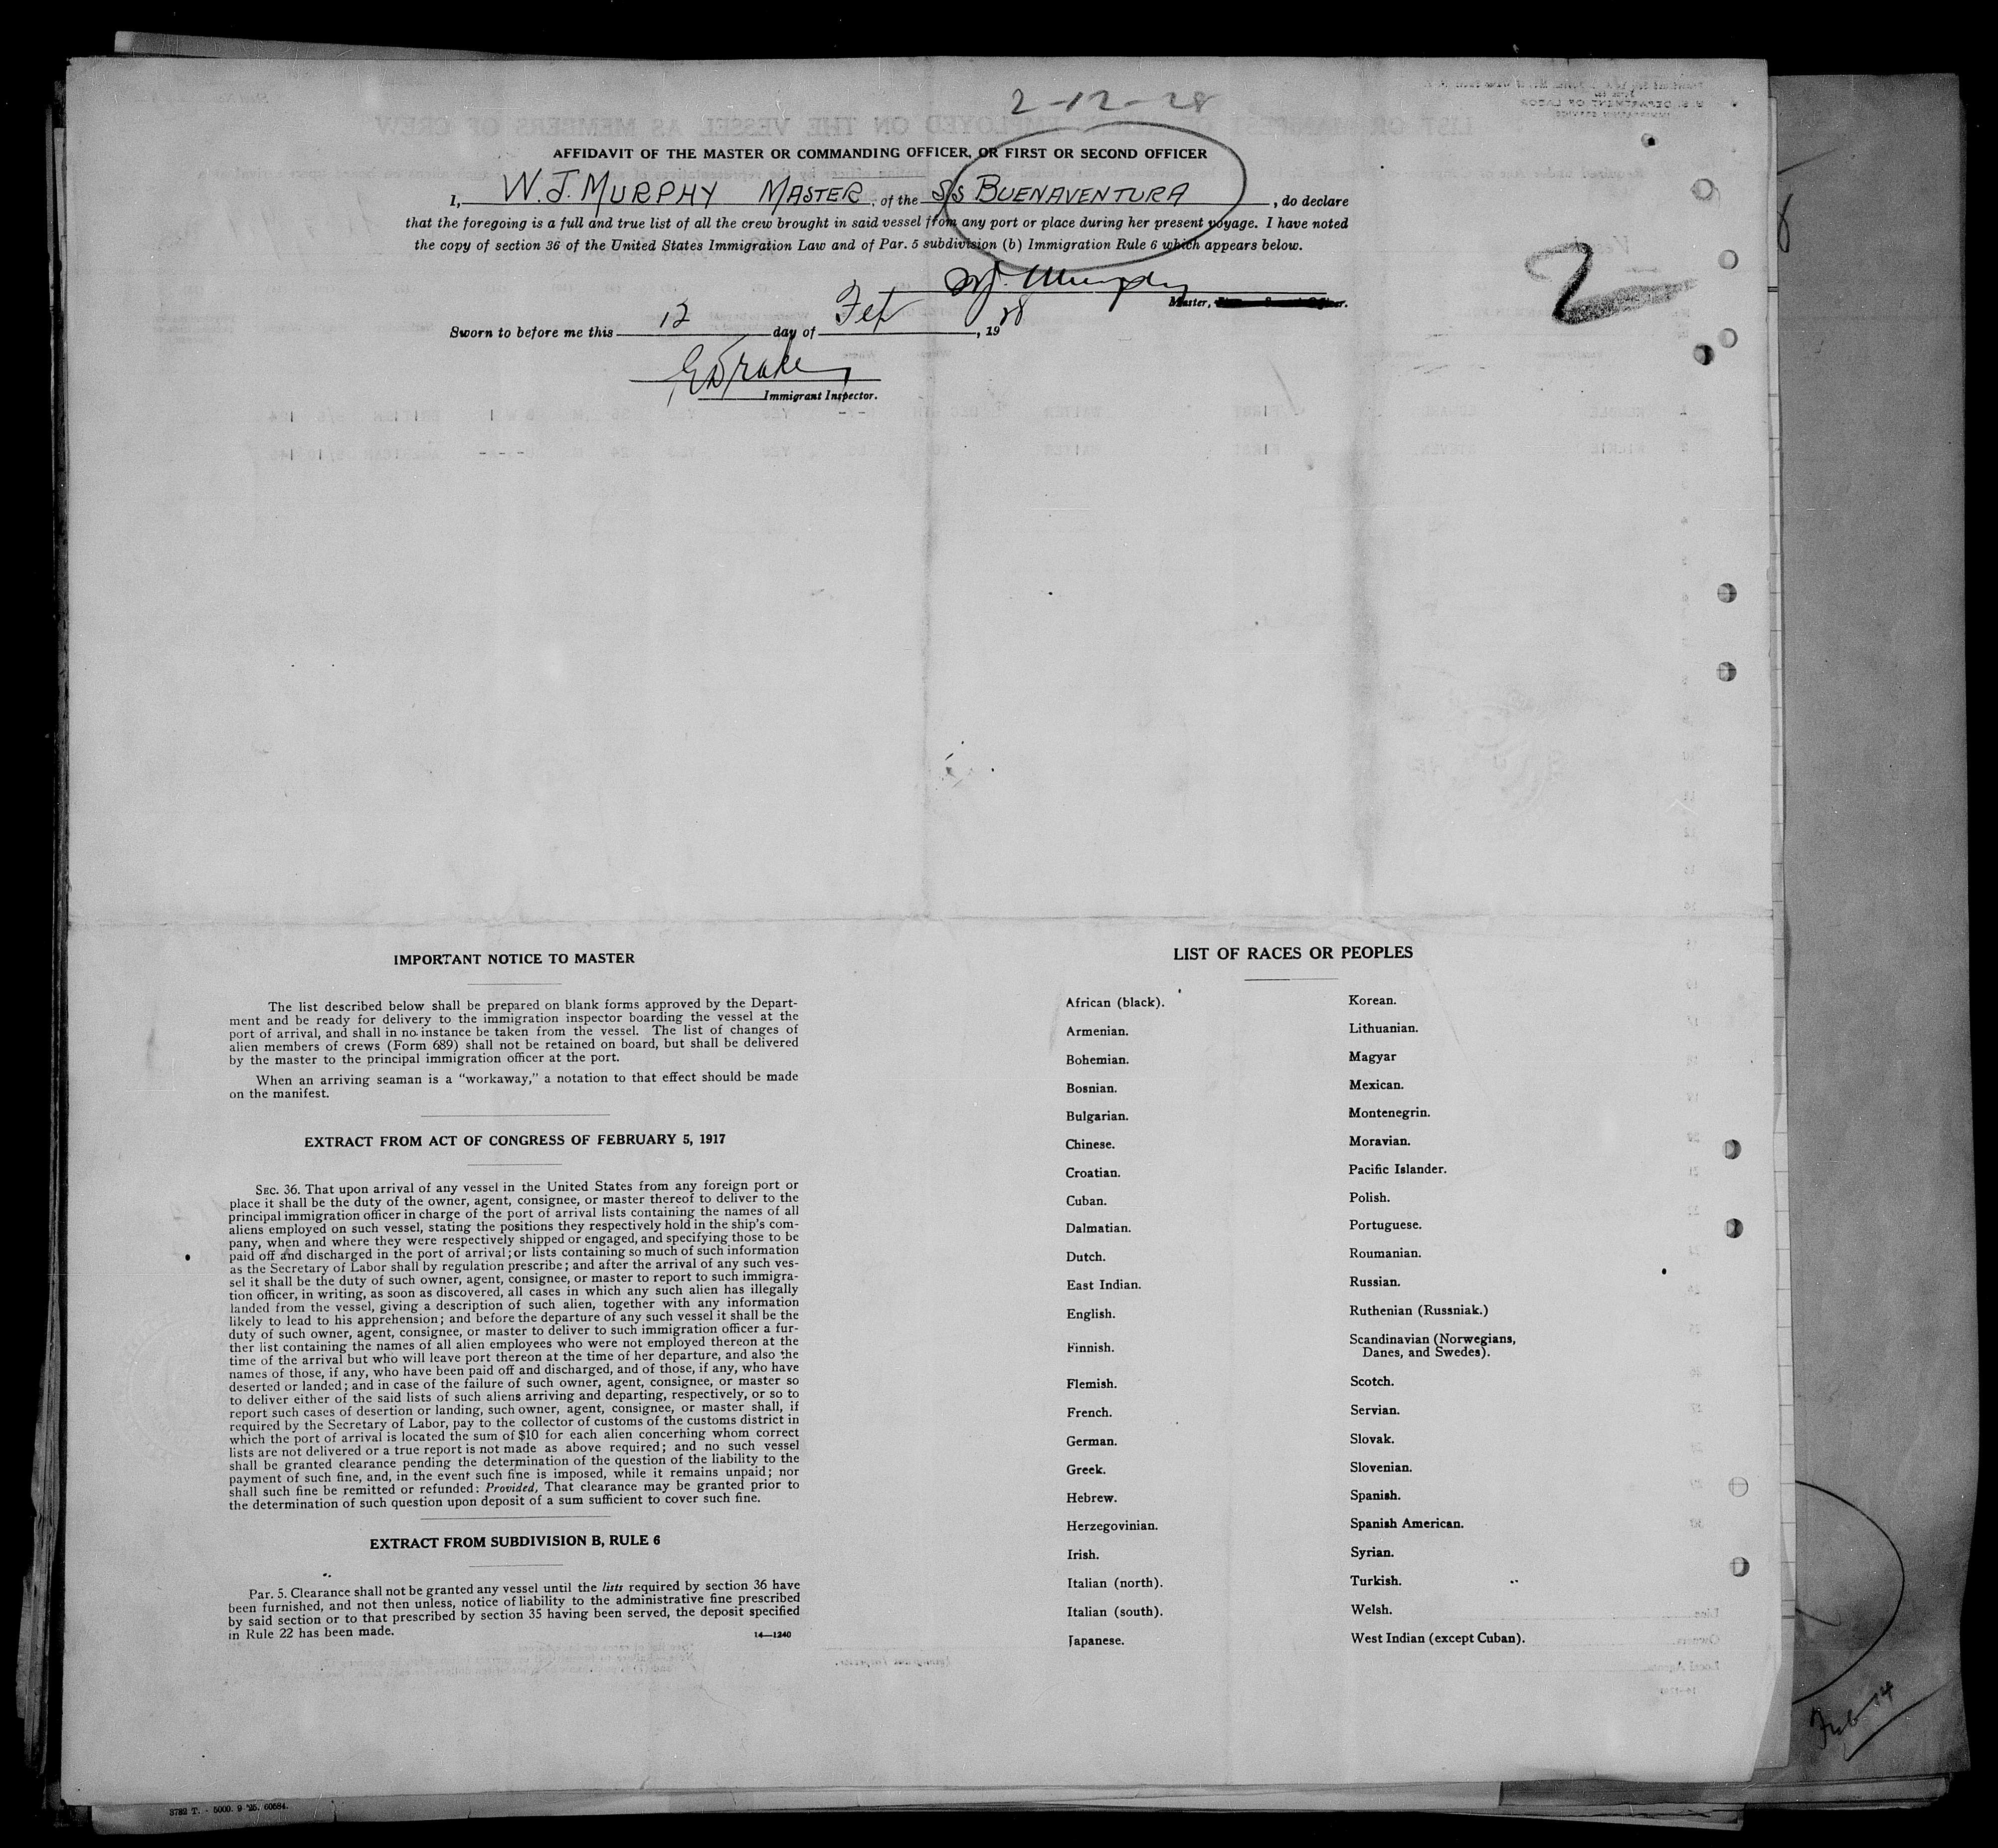 2-12-28
AFFIDAVIT OF THE MASTER OR COMMANDING OFFICER, OR FIRST OR SECOND OFFICER
I, W. J. MURPHY MASTER, of the S/S BUENAVENTURA, do declare
that the foregoing is a full and true list of all the crew brought in said vessel from any port or place during her present voyage. I have noted
the copy of section 36 of the United States Immigration Law and of Par. 5 subdivision (b) Immigration Rule 6 which appears below.
2
W.J. Murphy
Master,
Sworn to before me this 12 day of Feb, 1928
Immigrant Inspector.
IMPORTANT NOTICE TO MASTER
The list described below shall be prepared on blank forms approved by the Depart-
ment and be ready for delivery to the immigration inspector boarding the vessel at the
port of arrival, and shall in no instance be taken from the vessel. The list of changes of
alien members of crews (Form 689) shall not be retained on board, but shall be delivered
by the master to the principal immigration officer at the port.
When an arriving seaman is a "workaway," a notation to that effect should be made
on the manifest.
EXTRACT FROM ACT OF CONGRESS OF FEBRUARY 5, 1917
SEC. 36. That upon arrival of any vessel in the United States from any foreign port or
place it shall be the duty of the owner, agent, consignee, or master thereof to deliver to the
principal immigration officer in charge of the port of arrival lists containing the names of all
aliens employed on such vessel, stating the positions they respectively hold in the ship's com-
pany, when and where they were respectively shipped or engaged, and specifying those to be
paid off and discharged in the port of arrival; or lists containing so much of such information
as the Secretary of Labor shall by regulation prescribe; and after the arrival of any such ves-
sel it shall be the duty of such owner, agent, consignee, or master to report to such immigra-
tion officer, in writing, as soon as discovered, all cases in which any such alien has illegally
landed from the vessel, giving a description of such alien, together with any information
likely to lead to his apprehension; and before the departure of any such vessel it shall be the
duty of such owner, agent, consignee, or master to deliver to such immigration officer a fur-
ther list containing the names of all alien employees who were not employed thereon at the
time of the arrival but who will leave port thereon at the time of her departure, and also the
names of those, if any, who have been paid off and discharged, and of those, if any, who have
deserted or landed; and in case of the failure of such owner, agent, consignee, or master so
to deliver either of the said lists of such aliens arriving and departing, respectively, or so to
report such cases of desertion or landing, such owner, agent, consignee, or master shall, if
required by the Secretary of Labor, pay to the collector of customs of the customs district in
which the port of arrival is located the sum of $10 for each alien concerning whom correct
lists are not delivered or a true report is not made as above required; and no such vessel
shall be granted clearance pending the determination of the question of the liability to the
payment of such fine, and, in the event such fine is imposed, while it remains unpaid; nor
shall such fine be remitted or refunded: Provided, That clearance may be granted prior to
the determination of such question upon deposit of a sum sufficient to cover such fine.
EXTRACT FROM SUBDIVISION B, RULE 6
Par. 5. Clearance shall not be granted any vessel until the lists required by section 36 have
been furnished, and not then unless, notice of liability to the administrative fine prescribed
by said section or to that prescribed by section 35 having been served, the deposit specified
in Rule 22 has been made.
14—1240
LIST OF RACES OR PEOPLES
African (black).
Armenian.
Bohemian.
Bosnian.
Bulgarian.
Chinese.
Croatian.
Cuban.
Dalmatian.
Dutch.
East Indian.
English.
Finnish.
Flemish.
French.
German.
Greek.
Hebrew.
Herzegovinian.
Irish.
Italian (north).
Italian (south).
Japanese.
Korean.
Lithuanian.
Magyar
Mexican.
Montenegrin.
Moravian.
Pacific Islander.
Polish.
Portuguese.
Roumanian.
Russian.
Ruthenian (Russniak.)
Scandinavian (Norwegians,
Danes, and Swedes).
Scotch.
Servian.
Slovak.
Slovenian.
Spanish.
Spanish American.
Syrian.
Turkish.
Welsh.
West Indian (except Cuban).
Feb 14
3782 T. - 5000. 9 '25. 60584.